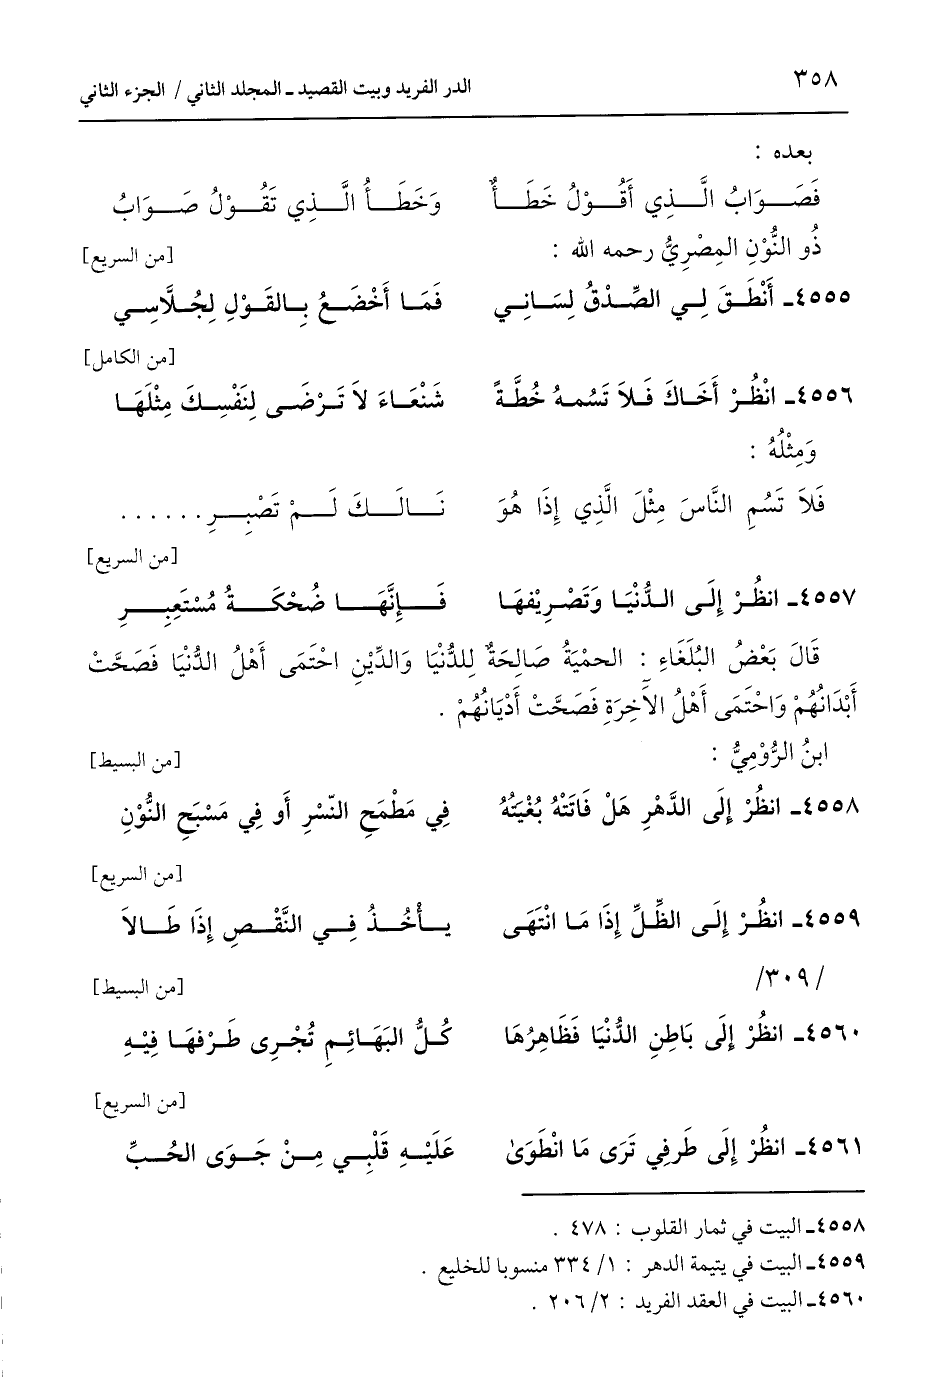 ٣٥٨ الدر الفريد وبيت القصيد ـ المجلد الثاني / الجزء الثاني
بعده :
فَصَـوَابُ الَّـذِي أَقُوْلُ خَطَأٌ وَخَطَأُ الَّذِي تَقُوْلُ صَوَابُ
ذُو النُّوْنِ المِصْرِيُّ رحمه الله : [من السريع]
٤٥٥٥ـ أَنْطَقَ لِي الصِّدْقُ لِسَانِي فَمَا أَخْضَعُ بِالقَوْلِ لِجُلَّاسِي
[من الكامل]
٤٥٥٦ـ انْظُرْ أَخَاكَ فَلاَ تَسُمهُ خُطَّةً شَنْعَاءَ لاَ تَرْضَى لِنَفْسِكَ مِثْلَهَا
وَمِثْلُهُ :
فَلاَ تَسُمِ النَّاسَ مِثْلَ الَّذِي إِذَا هُوَ نَالَكَ لَمْ تَصْبِرِ......
[من السريع]
٤٥٥٧ـ انظُرْ إِلَى الدُّنْيَا وَتَصْرِيْفهَا فَإِنَّهَا ضُحْكَةُ مُسْتَعبِرِ
قَالَ بَعْضُ البُلَغَاءِ : الحمْيَةُ صَالِحَةٌ لِلدُّنْيَا وَالدِّيْنِ احْتَمَى أَهْلُ الدُّنْيَا فَصَحَّتْ
أَبْدَانُهُمْ وَاحْتَمَى أَهْلُ الآخِرَةِ فَصَحَّتْ أَدْيَانُهُمْ .
ابنُ الرُّوْمِيُّ : [من البسيط]
٤٥٥٨ـ انظُرْ إِلَى الدَّهْرِ هَلْ فَاتَتْهُ بُغْيَتُهُ فِي مَطْمَحِ النّسْرِ أَو فِي مَسْبَحِ النُّوْنِ
[من السريع]
٤٥٥٩ـ انظُرْ إِلَى الظِّلِّ إِذَا مَا انْتَهَى يأْخُذُ فِي النَّقْصِ إِذَا طَالاَ
/٣٠٩/ [من البسيط]
٤٥٦٠ـ انظُرْ إِلَى بَاطِنِ الدُّنْيَا فَظَاهِرُهَا كُلُّ البَهَائِمِ تُجْرِى طَرْفهَا فِيْهِ
[من السريع]
٤٥٦١ـ انظُرْ إِلَى طَرفِي تَرَى مَا انْطَوَىٰ عَلَيْهِ قَلْبِي مِنْ جَوَى الحُبِّ
٤٥٥٨ـ البيت في ثمار القلوب : ٤٧٨ .
٤٥٥٩ـ البيت في يتيمة الدهر : ١/ ٣٣٤ منسوبا للخليع .
٤٥٦٠ـ البيت في العقد الفريد : ٢/ ٢٠٦ .